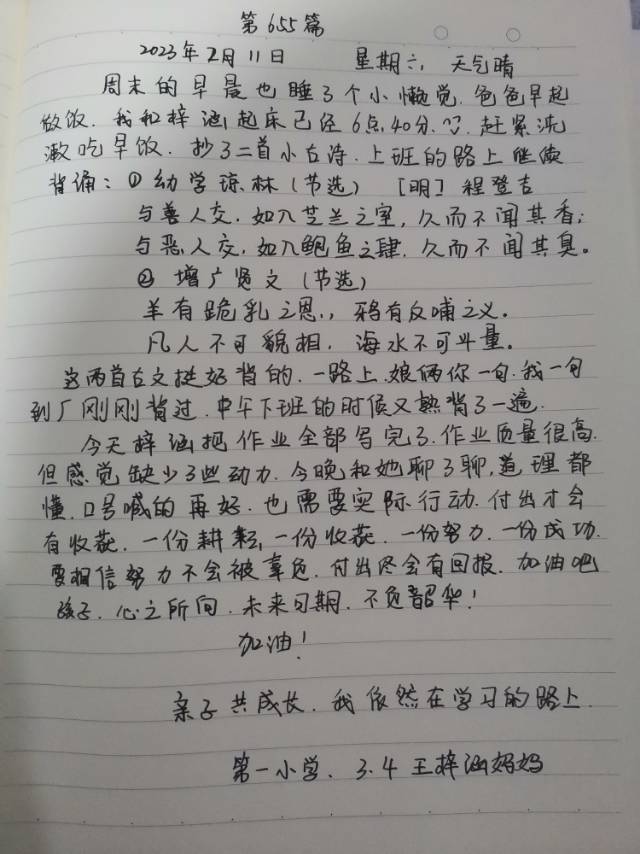 第655篇
2023年2月11日 星期六, 天气晴
周末的早晨也睡了个小懒觉.爸爸早起
做饭.我和梓涵起床已经6点40分.赶紧洗
漱吃早饭.抄了二首小古诗.上班的路上继续
背诵:①幼学琼林(节选) [明]程登吉
与善人交,如入芝兰之室,久而不闻其香;
与恶人交,如入鲍鱼之肆,久而不闻其臭。
②增广贤文(节选)
羊有跪乳之恩,,鸦有反哺之义。
凡人不可貌相,海水不可斗量。
这两首古文挺好背的.一路上,娘俩你一句.我一句
到厂刚刚背过.中午下班的时候又熟背了一遍.
今天梓涵把作业全部写完了.作业质量很高.
但感觉缺少了些动力.今晚和她聊了聊,道理都
懂.口号喊的再好.也需要实际行动.付出才会
有收获.一份耕耘,一份收获.一份努力.一份成功.
要相信努力不会被辜负.付出尽会有回报.加油吧
孩子.心之所向.未来可期.不负韶华!
加油!
亲子共成长.我依然在学习的路上.
第一小学.3.4王梓涵妈妈